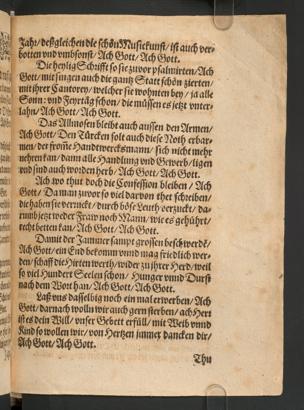 Jahr/ deßgleichen die schön Musickunst/ ist auch ver-
botten vnd vmbsonst/ Ach Gott/ Ach Gott.
Die heylig Schrifft so sie zuvor psalmirten/ Ach
Gott/ mit singen auch die gantz Statt schön zierten/
mit jhrer Cantorey/ welcher sie wohnten bey/ ja alle
Sonn: vnd Feyrtäg schon/ die müssen es jetzt vnter-
lahn/ Ach Gott/ Ach Gott.
Das Allmosen bleibt auch aussen den Armen/
Ach Gott/ Den Türcken solt auch diese Noth erbar-
men/ der from̃e Handtwercksmann/ sich nicht mehr
nehren kan/ dann alle Handlung vnd Gewerb/ ligen
vnd sind auch worden herb/ Ach Gott/ Ach Gott.
Ach wo thut doch die Confession bleiben/ Ach
Gott/ Da man zuvor so viel darvon thet schreiben/
die haben sie verruckt/ durch böse Leuth verzuckt/ da-
rumb jetzt weder Fraw noch Mann/ wie es gebührt/
recht betten kan/ Ach Gott/ Ach Gott.
Damit der Jammer sampt grossen beschwerde/
Ach Gott/ ein End bekomm vnd mag friedlich wer-
den/ schaff die Hirten werth/ wider zu jhrer Herd/ weil
so viel hundert Seelen schon/ Hunger vnnd Durst
nach dem Wort han/ Ach Gott/ Ach Gott.
Laß vns dasselbig noch ein mal erwerben/ Ach
Gott/ darnach wolln wir auch gern sterben/ ach Herr
ist es dein Will/ vnser Gebett erfüll/ mit Weib vnnd
Kind so wollen wir/ von Hertzen jmmer dancken dir/
Ach Gott/ Ach Gott.
Thu